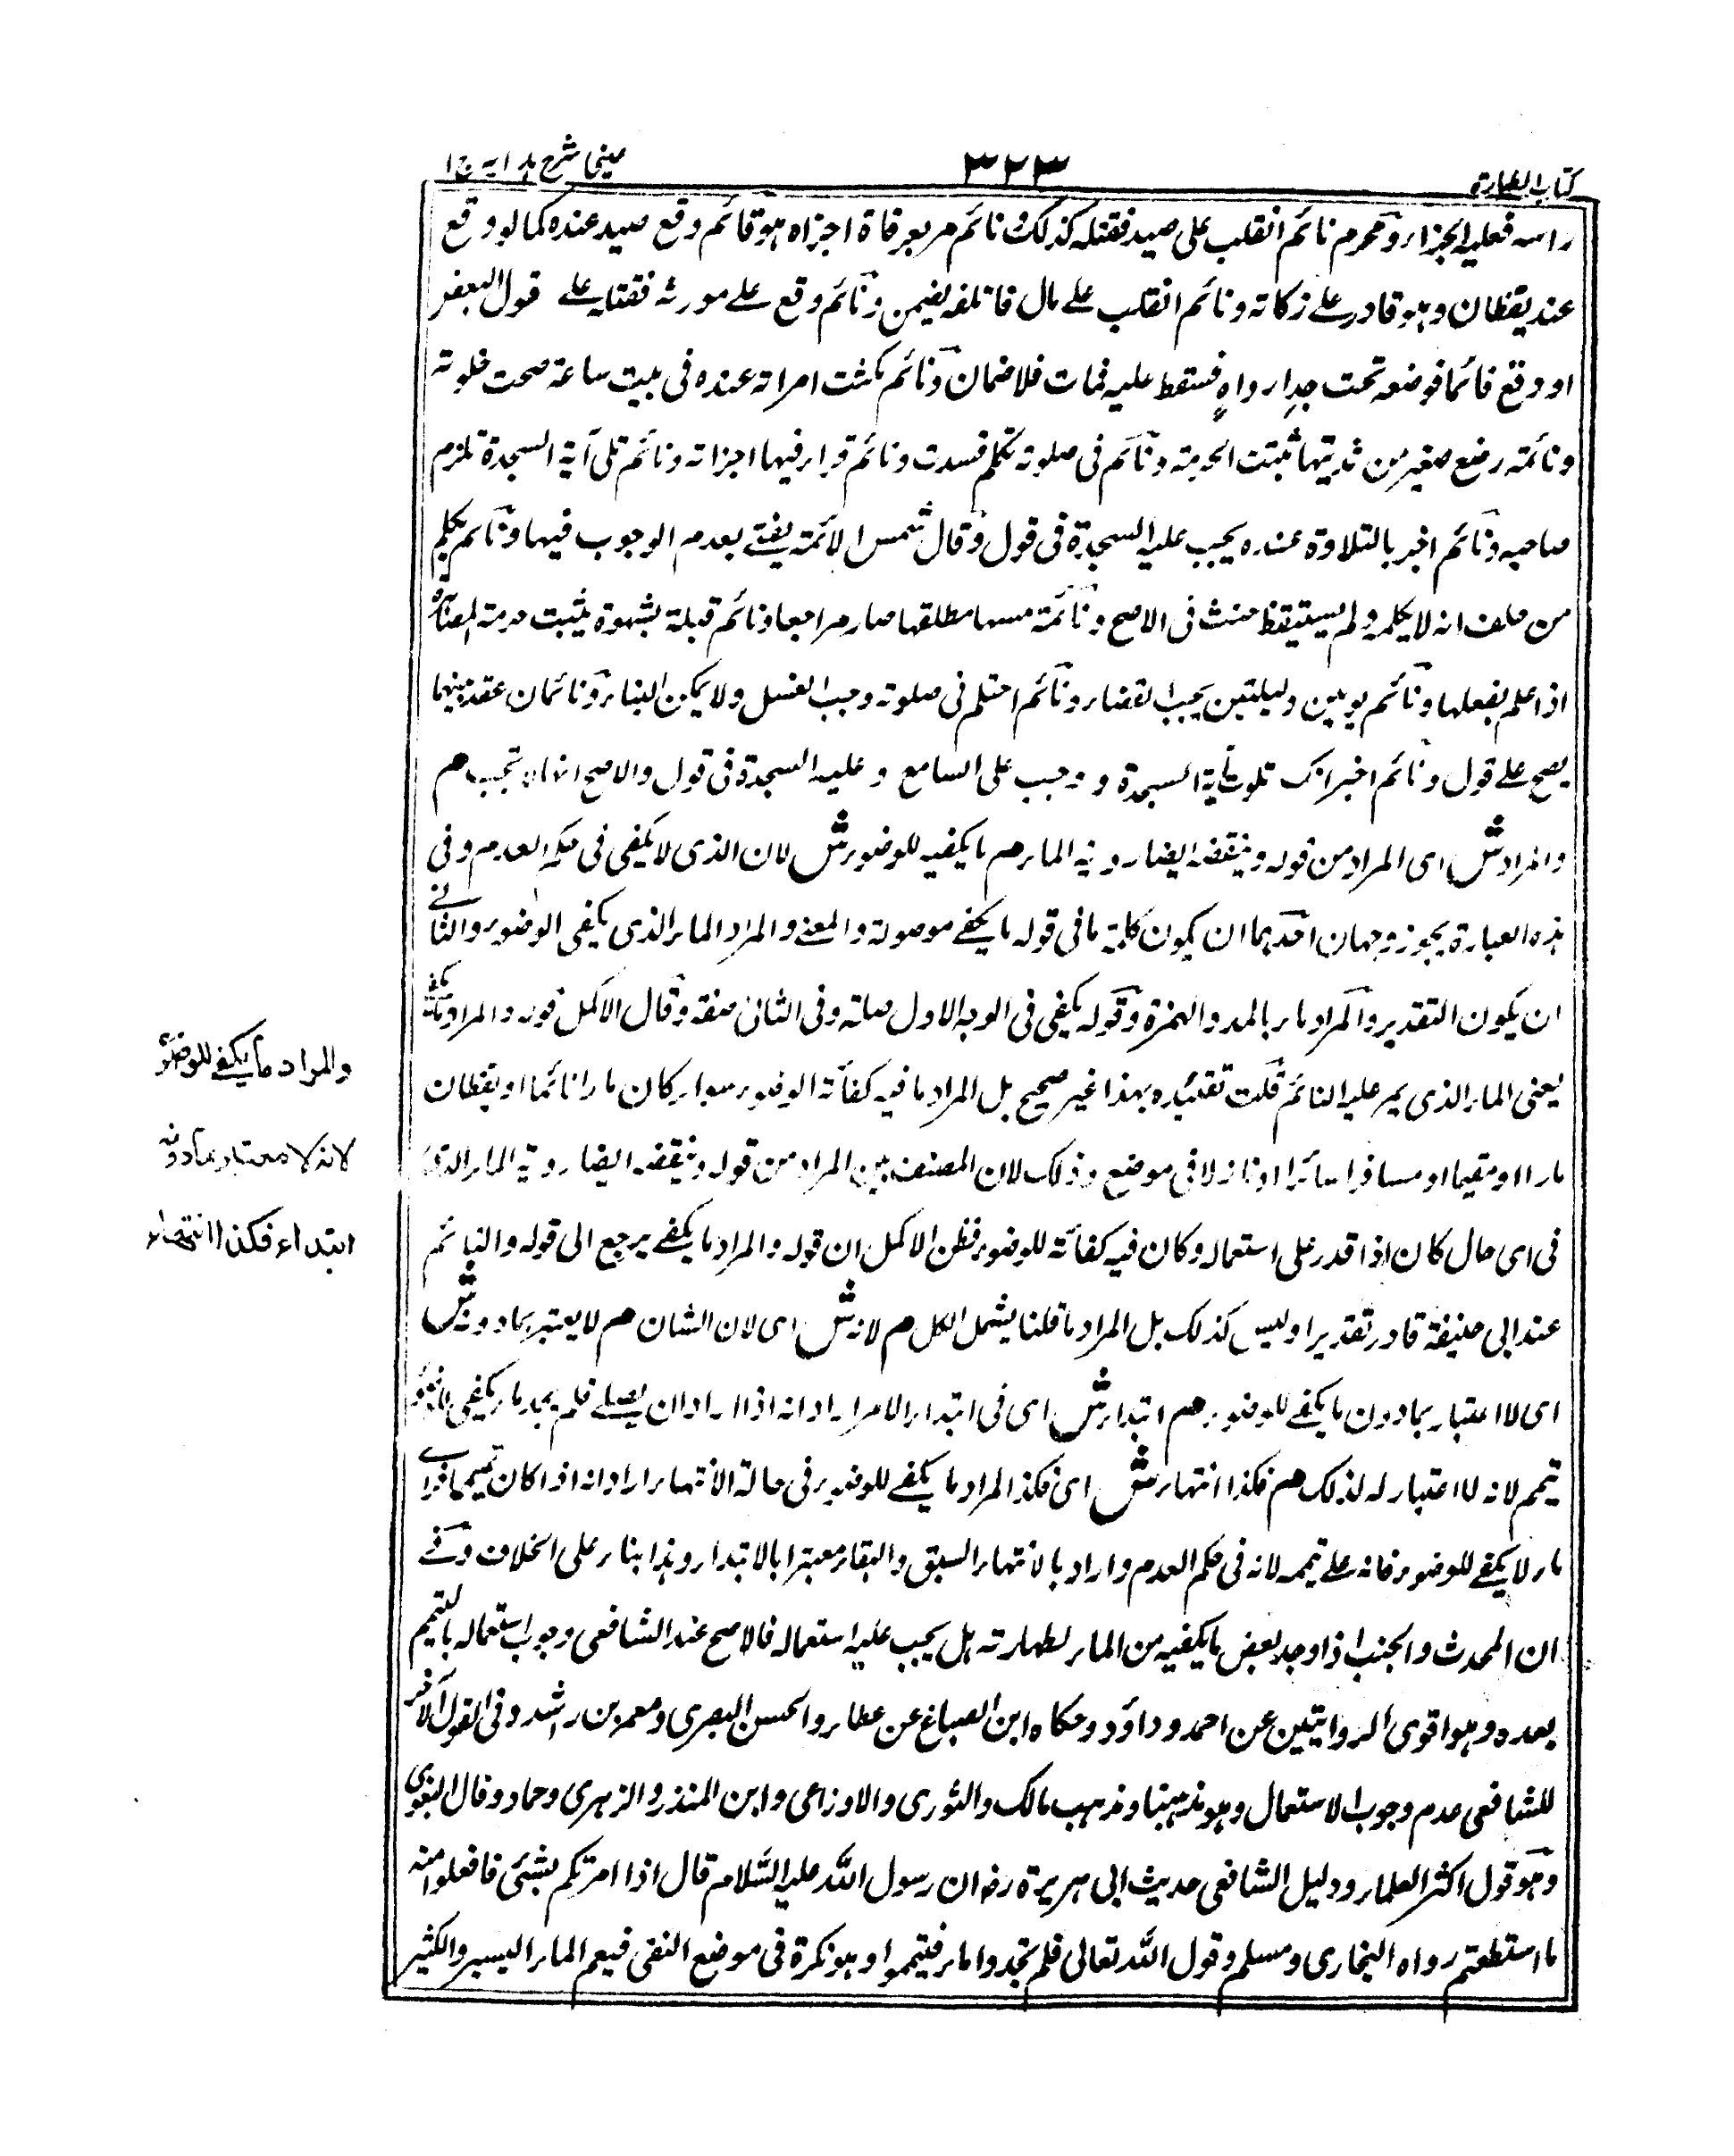 كتاب الطهارة
٣٢٣
عينى شرح هدايه ج ١
راسه فعليه الجزاء ومحرم نائم انقلب على صيد فقتله كذلك نائم مر بعرفاة اجزاه وهو قائم وقع صيد عنده كما لو وقع
عند يقظان وهو قادر على زكاته ونائم انقلب على مال فاتلفه يضمن ونائم وقع على مورثه فقتله على قول البعض
او وقع نائما فوضعه تحت جدار واه فسقط عليه فمات فلا ضمان ونائم مكثت امراته عنده فى بيت ساعة صحت خلوته
ونائمة رضع صغير من ثديتها ثبتت الحرمة ونائم فى صلوته تكلم فسدت ونائم قرا فيها اجزاته ونائم تلى آية السجدة تلزم
صاحبه ونائم اخبر بالتلاوة عنده يجب عليه السجدة فى قول وقال شمس الائمة يفتى بعدم الوجوب فيها ونائم تكلم
من حلف انه لا يكلمه ولم يستيقظ حنث فى الاصح ونائمة مسها مطلقها صار مراجعا ونائم قبلة بشهوة يثبت حرمة المصاهرة
اذا علم بفعلها ونائم يومين وليلتين يجب القضاء ونائم احتلم فى صلوته وجب الغسل ولا يمكن البناء ونائمان عقد بينهما
يصح على قول ونائم اخبر انك تلوت آية السجدة و وجب على السامع و عليه السجدة فى قول والاصح انها لا تجب م
والمراد ش اى المراد من قوله وينقضه ايضا روية الماء م ما يكفيه للوضوء ش لان الذى لا يكفى فى حكم العدم وفى
هذه العبارة يجوز وجهان احدهما ان يكون كلمة ما فى قوله ما يكفى موصولة والمعنى والمراد الماء الذى يكفى الوضوء والثانى
ان يكون التقدير والمراد ماء بالمد والهمزة وقوله يكفى فى الوجه الاول صلته وفى الثانى صفة وقال الاكمل قوله والمراد ما يكفى
يعنى الماء الذى يمر عليه النائم قلت تقئيده بهذا غير صحيح بل المراد ما فيه كفائة الوضوء سواء كان مارا نائما او يقظان
مارا او مقيما او مسافرا سائرا او نازلا فى موضع وذلك لان المصنف بين المراد من قوله وينقضه ايضا روية الماء الذى
فى اى حال كان اذا قدر على استعماله وكان فيه كفائة للوضوء فظن الاكمل ان قوله والمراد ما يكفى يرجع الى قوله والنائم
عند ابى حنيفة قادر تقديرا وليس كذلك بل المراد ما قلنا يشمل الكل م لانه ش اى لان الشان م لا يعتبر بما دونه ش
اى لا اعتبار بما دون ما يكفى للوضوء م ابتداء ش اى فى ابتداء الامر اراد انه اذا اراد ان يصلى فلم يجد ماء يكفى للوضوء
تيمم لانه لا اعتبار له لذلك م فكذا انتهاء ش اى فكذا المراد ما يكفى للوضوء فى حالة الانتهاء اراد انه اذا كان تيمم فراى
ماء لا يكفى للوضوء فانه على تيممه لانه فى حكم العدم واراد بالانتهاء السبق والبقاء معتبرا بالابتداء وهذا بناء على الخلاف وفى
ان المحدث والجنب اذا وجد بعض ما يكفيه من الماء لطهارته هل يجب عليه استعماله فالاصح عند الشافعى وجوب استعماله بالتيمم
بعده وهو اقوى الروايتين عن احمد وداؤد وحكاه ابن الصباغ عن عطاء والحسن البصرى ومعمر بن راشد وفى القول الآخر
للشافعى عدم وجوب الاستعمال وهو مذهبنا ومذهب مالك والثورى والاوزاعى وابن المنذر والزهرى وحماد وقال البغوى
وهو قول اكثر العلماء ودليل الشافعى حديث ابى هريرة رض ان رسول الله عليه السلام قال اذا امرتكم بشئى فافعلوا منه
ما استطعتم رواه البخارى ومسلم وقول الله تعالى فلم تجدوا ماء فتيمموا وهو نكرة فى موضع النفى فيعم الماء اليسير والكثير
والمراد ما يكفى للوضوء
لانه لا معتبر بما دونه
ابتداء فكذا انتهاء